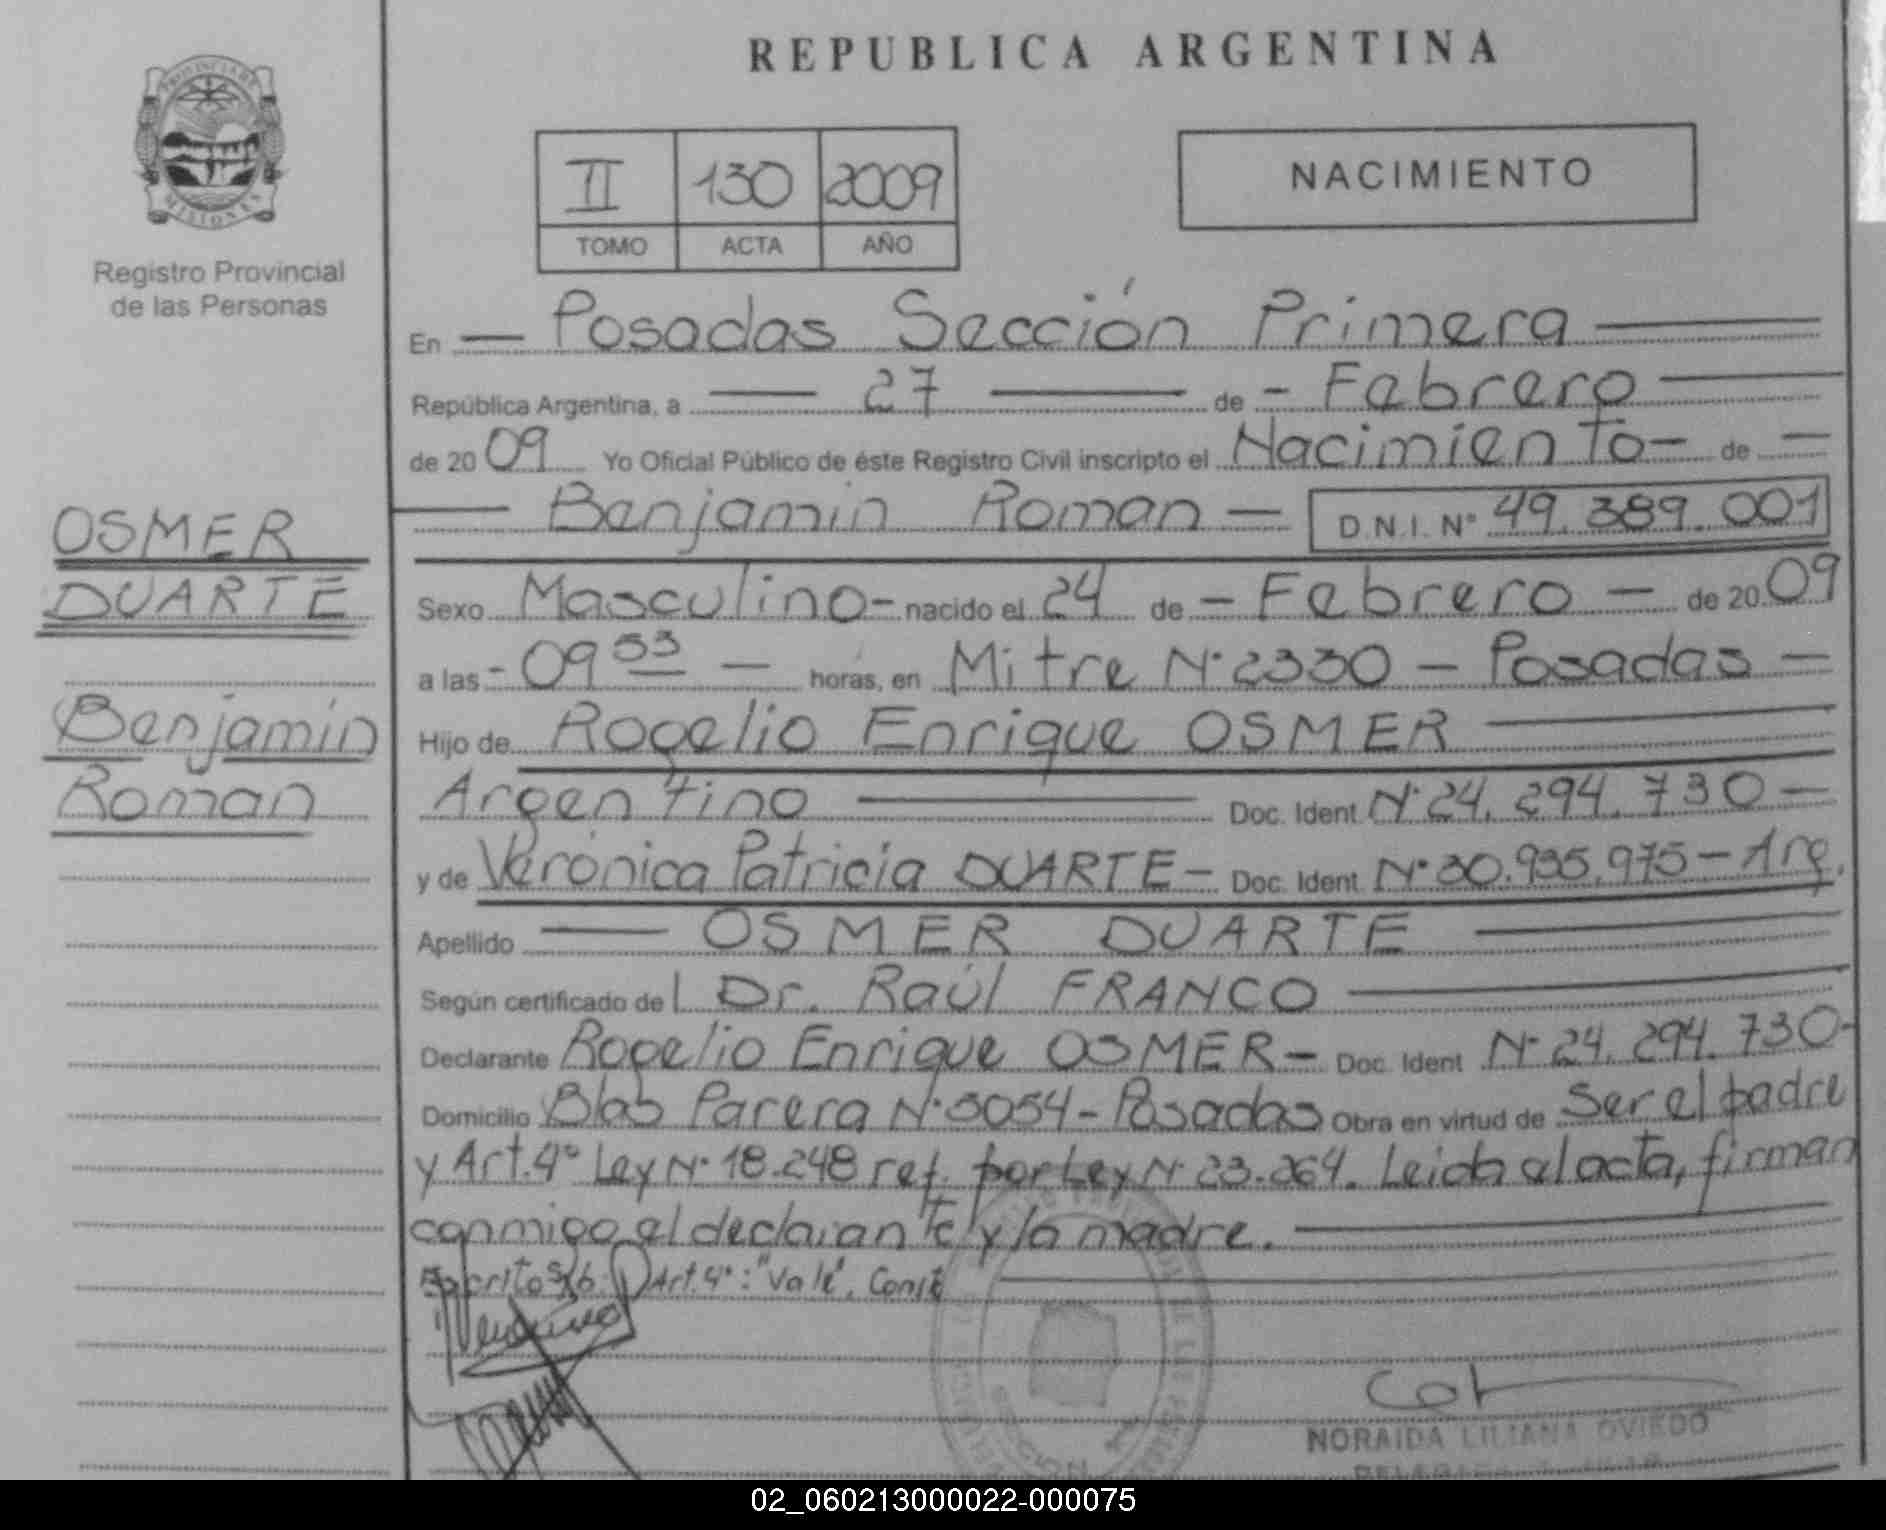 PROVINCIA DE
MISIONES
Registro Provincial
de las Personas
OSMER
DUARTE
Benjamin
Roman
REPUBLICA ARGENTINA
II 130 2009
TOMO ACTA AÑO
NACIMIENTO
En — Posadas Sección Primera
República Argentina, a — 27 — de - Febrero
de 20 09 Yo Oficial Público de éste Registro Civil inscripto el Nacimiento - de —
— Benjamin Roman — D.N.I. Nº 49.389.001
Sexo Masculino - nacido el 24 de - Febrero - de 20 09
a las - 09 53 — horas, en Mitre Nº 2330 - Posadas -
Hijo de Rogelio Enrique OSMER
Argentino — Doc. Ident Nº 24.294.730 -
y de Verónica Patricia DUARTE - Doc. Ident Nº 30.935.975 - Arg.
Apellido — OSMER DUARTE —
Según certificado del Dr. Raúl FRANCO —
Declarante Rogelio Enrique OSMER - Doc. Ident Nº 24.294.730 -
Domicilio Blas Parera Nº 5054 - Posadas Obra en virtud de Ser el padre
y Art. 4º Ley Nº 18.248 ref. por Ley Nº 23.264. Leida el acta, firman
conmigo el declarante y la madre. —
Escrito s/b: Art. 4º: "Vale". Conste
NORAIDA LILIANA OVIEDO
02_060213000022-000075